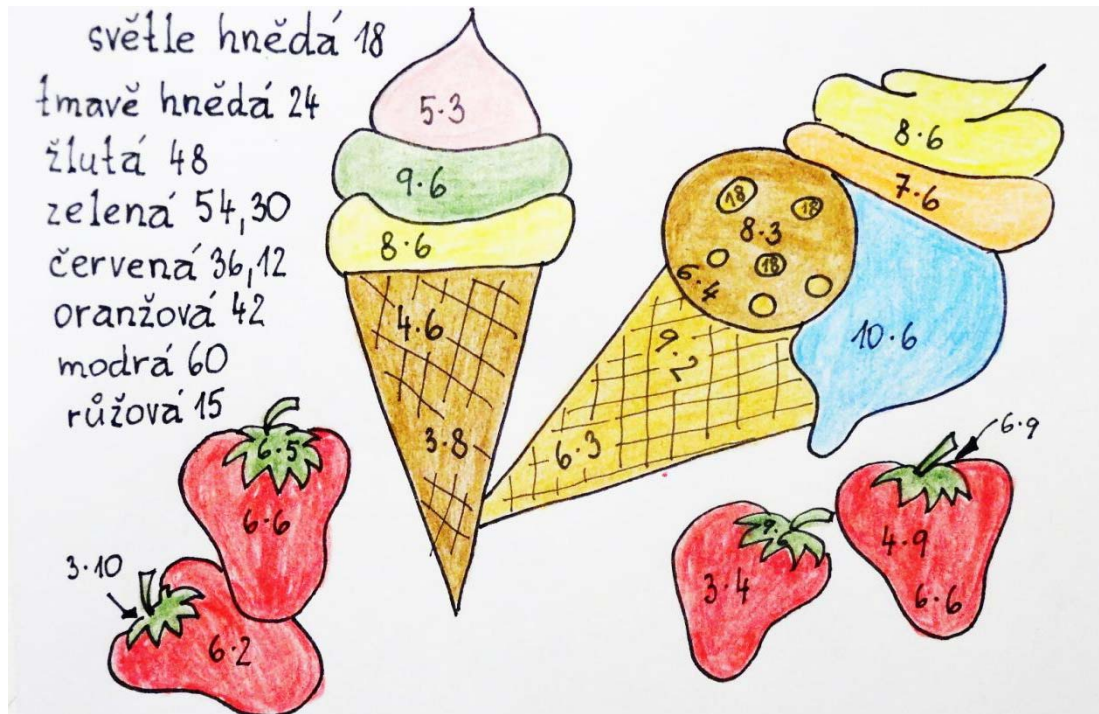 světle hnědá 18
tmavě hnědá 24
žlutá 48
zelená 54,30
červená 36,12
oranžová 42
modrá 60
růžová 15
5·3
9·6
8·6
4·6
3·8
8·6
7·6
18
18
8·3
18
6·4
10·6
9·2
6·3
6·5
6·6
3·10
6·2
6·9
4·9
6·6
3·4